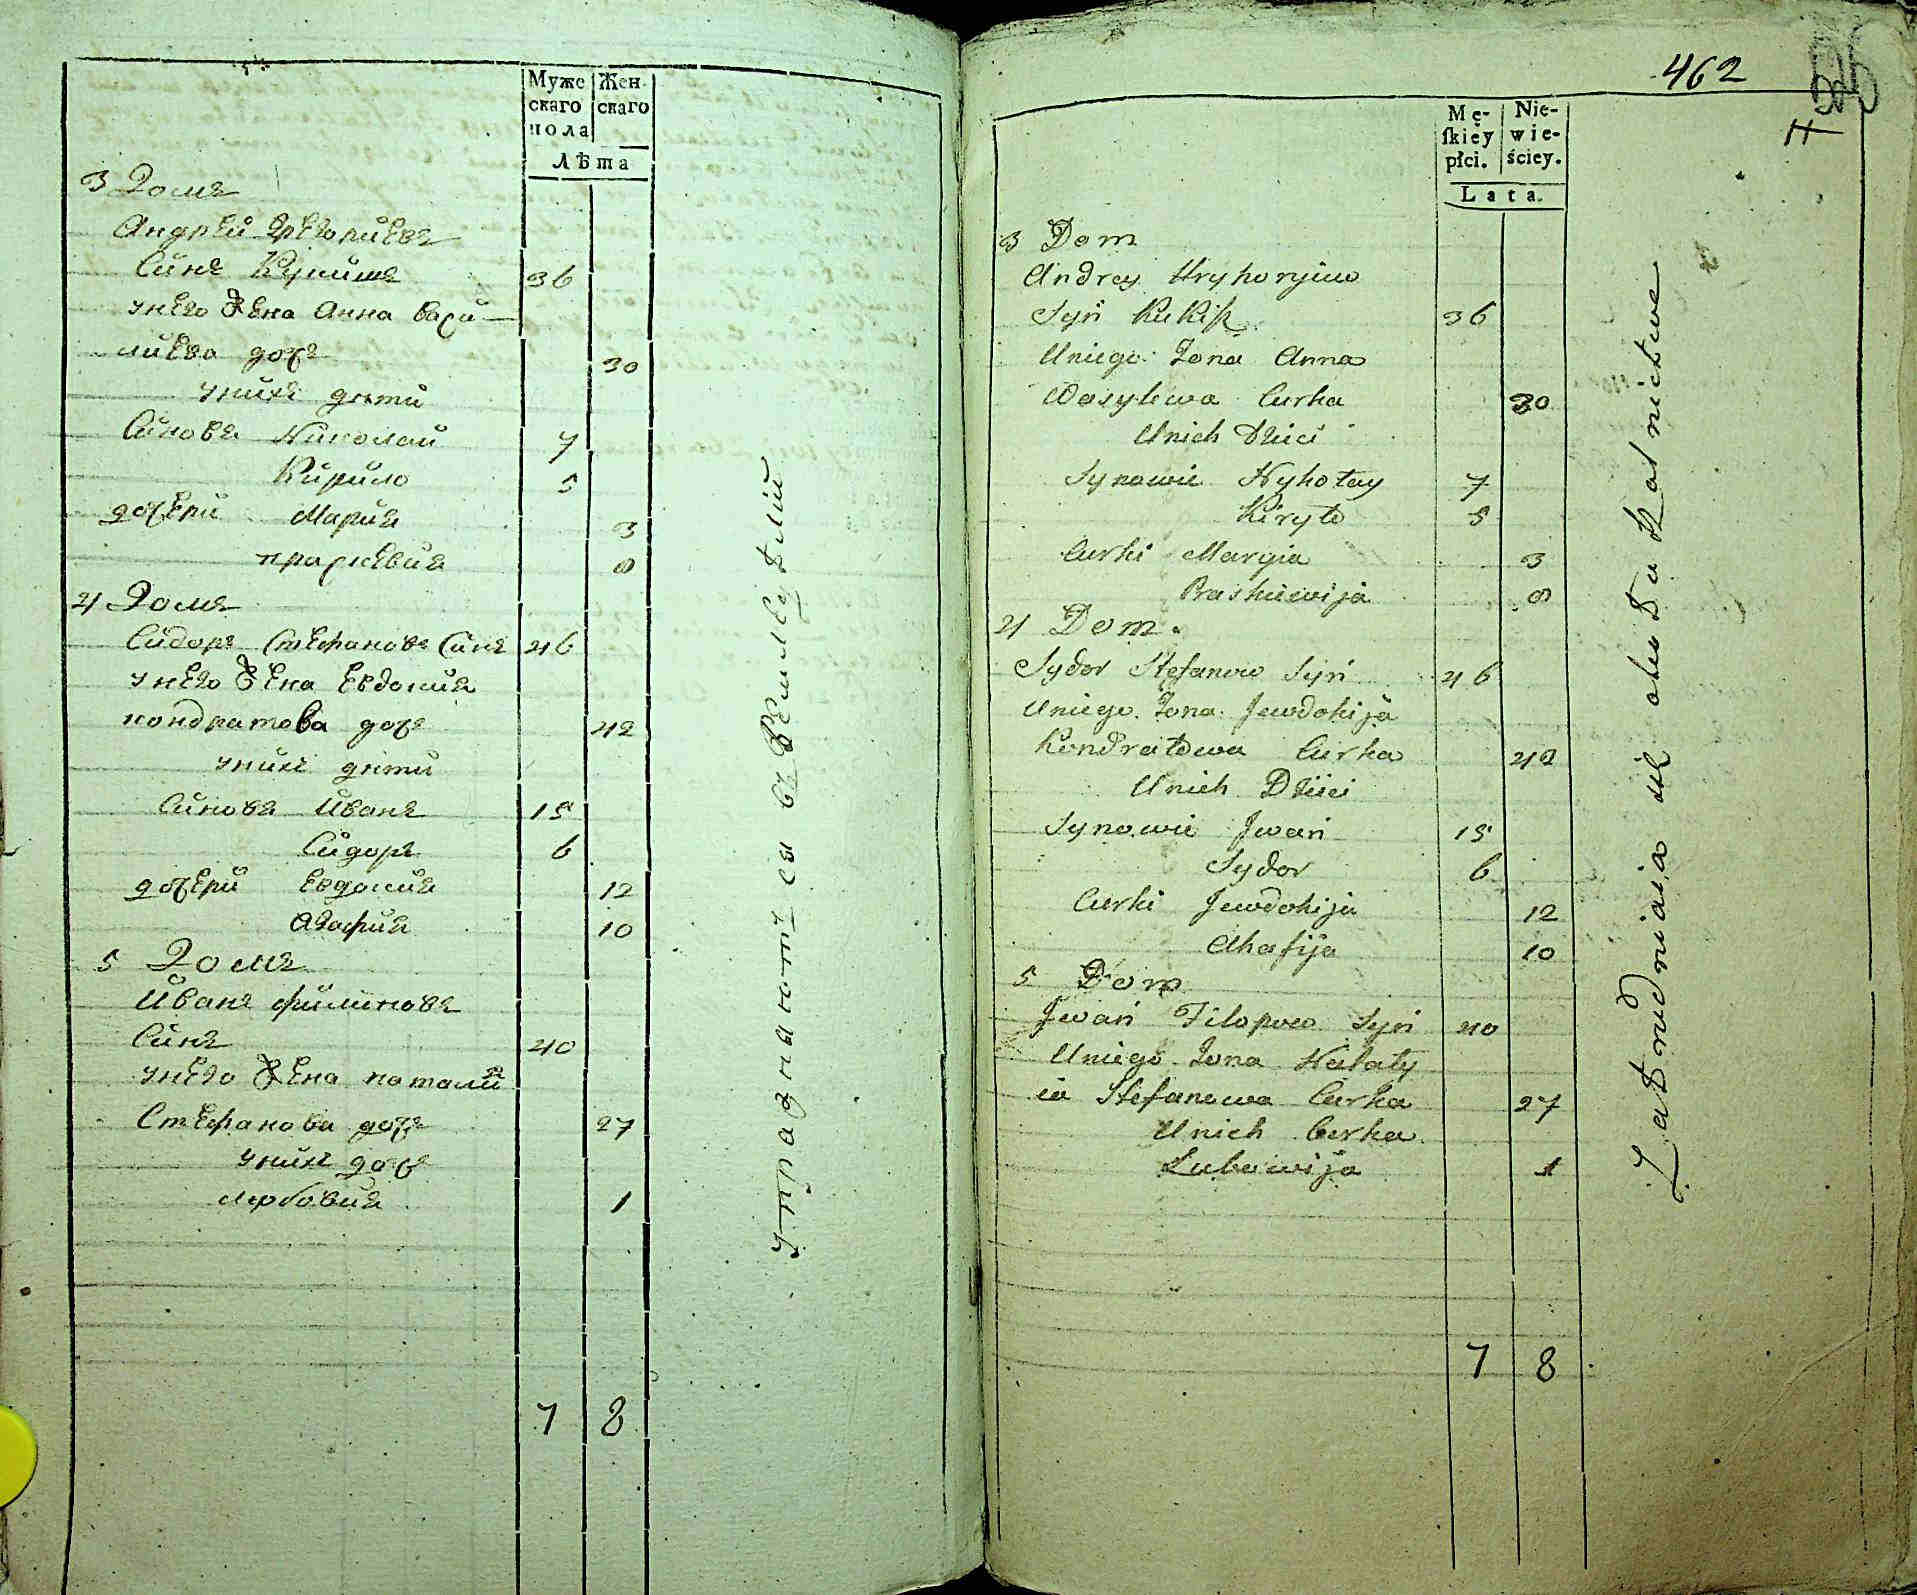 Муже
скаго
пола
Жен-
скаго
Лѣта
3 Домъ
Андрей Григориевъ
Синъ Кукишъ 36
унего жена Анна Васи-
лиева дочъ 30
унихъ дети
Синовя Николай 7
Кирило 5
дочери Мария 3
праскевия 8
4 Домъ
Сидоръ Стефановъ Синъ 46
унего жена Евдокия
кондратова дочъ 42
унихъ дети
Синовя Иванъ 15
Сидоръ 6
дочери Евдокия 12
Агафия 10
5 Домъ
Иванъ филиповъ
Синъ 40
унего жена наталия
Стефанова дочъ 27
унихъ дочъ
любовия 1
7 8
упражняются въ земледелий
462
Mę-
ſkiey
płci.
Nie-
wie-
ściey.
Lata.
3 Dom
Andrey Hryhoryiuw
Syn Kukiſz 36
Uniego Zona Anna
Wasylewa Curka 30
Unich Dzieci
Synowie Nykołay 7
Kiryło 5
Curki Maryia 3
Praskiewija 8
4 Dom
Sydor Stefanow Syn 46
Uniego Zona Jewdokija
Kondratowa Curka 42
Unich Dzieci
Synowie Jwan 15
Sydor 6
Curki Jewdokija 12
Ahafija 10
5 Dom
Jwan Filopow Syn 40
Uniego Zona Nataly
ia Stefanowa Curka 27
Unich Curka
Lubowija 1
7 8
Zatrudniaią się około Rolnictwa